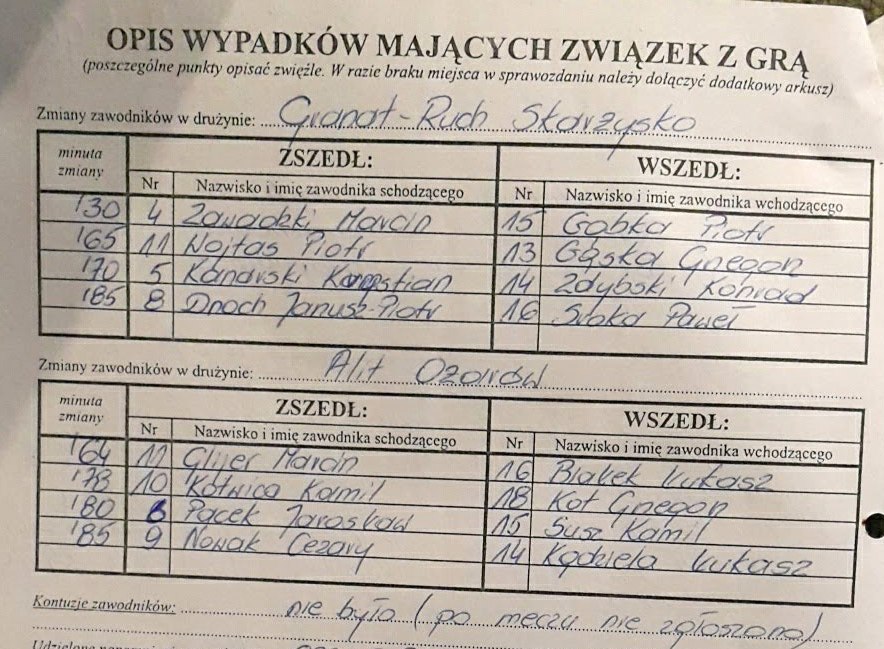 OPIS WYPADKÓW MAJĄCYCH ZWIĄZEK Z GRĄ
(poszczególne punkty opisać zwięźle. W razie braku miejsca w sprawozdaniu należy dołączyć dodatkowy arkusz)
Zmiany zawodników w drużynie: Granat-Ruch Skarżysko
minuta zmiany ZSZEDŁ: WSZEDŁ:
Nr Nazwisko i imię zawodnika schodzącego Nr Nazwisko i imię zawodnika wchodzącego
'30 4 Zawadzki Marcin 15 Gąbka Piotr
'65 11 Wojtas Piotr 13 Gąska Grzegorz
'70 5 Kanarski 14 Zdybski Konrad
'85 8 Dnoch Janusz-Piotr 16 Paweł
Zmiany zawodników w drużynie: Alit Ożarów
minuta zmiany ZSZEDŁ: WSZEDŁ:
Nr Nazwisko i imię zawodnika schodzącego Nr Nazwisko i imię zawodnika wchodzącego
'64 Marcin 16 Białek Łukasz
'78 10 Kotwica Kamil 18 Kot Grzegorz
'80 6 Pacek Jarosław 15 Susz Kamil
'85 9 Nowak Cezary 14 Kądziela Łukasz
Kontuzje zawodników: nie było (po meczu nie zgłoszono)